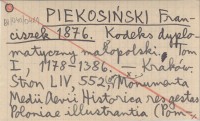 PIEKOSIŃSKI Fran-
ciszek 1876. Kodeks dyplo-
matyczny małopolski. Tom
I, 1178-1386 — Kraków.
Stron LIV, 552, Monumenta
Medii Aevii Historica res gestas
Poloniae illustrantia (Pom